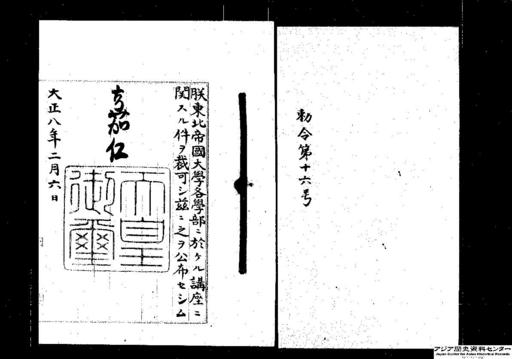 勅令第十六号
朕東北帝國大學各學部ニ於ケル講座ニ
関スル件ヲ裁可シ茲ニ之ヲ公布セシム
嘉仁
天皇
御璽
大正八年二月六日
アジア歴史資料センター
Japan Center for Asian Historical Records